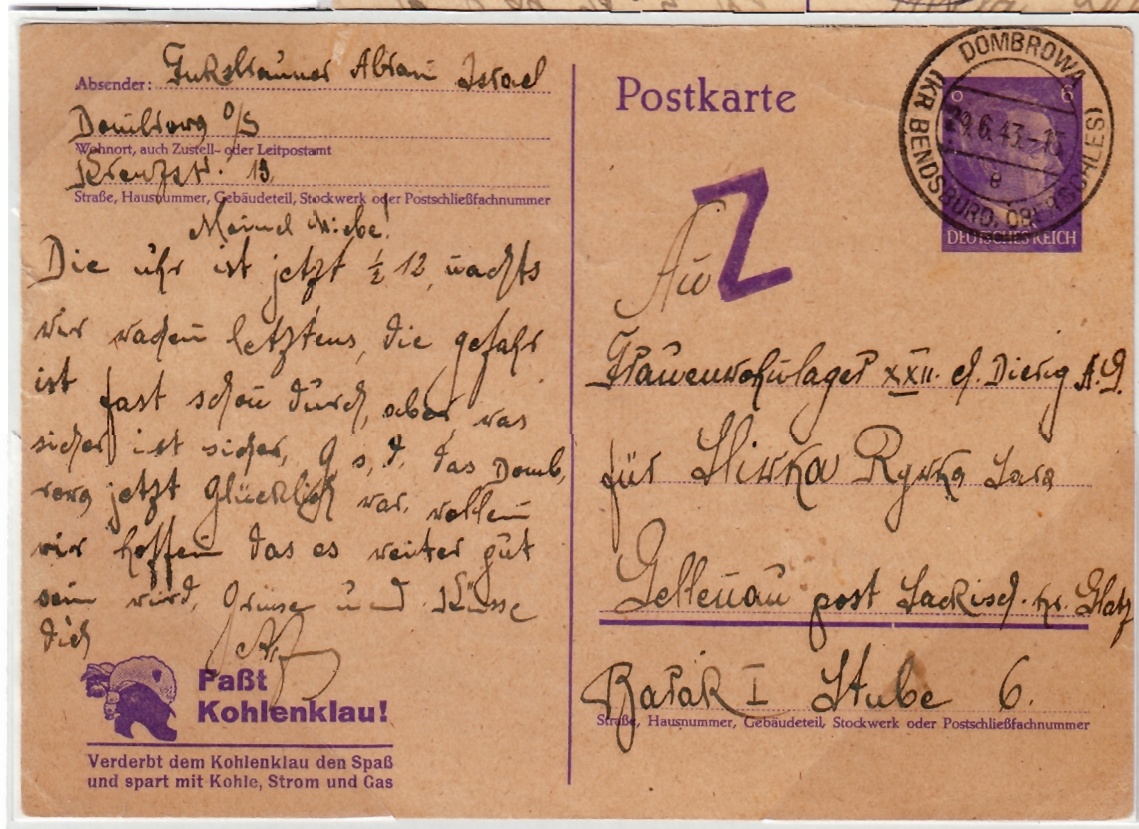 Absender: Abram Israel
Dombrowa O/S
Wohnort, auch Zustell- oder Leitpostamt
Kreuzstr. 13
Straße, Hausnummer, Gebäudeteil, Stockwerk oder Postschließfachnummer
Die uhr ist jetzt ½ 12, nachts
wir wachen letztens, die gefahr
ist fast schon durch, aber was
sicher ist sicher, G. s. d. das Domb,
rowa jetzt Glücklich war. wollen
wir hoffen das es weiter gut
sein wird, Grüsse und Küsse
dich
Paßt
Kohlenklau!
Verderbt dem Kohlenklau den Spaß
und spart mit Kohle, Strom und Gas
Postkarte
DOMBROWA
29.6.43.-15
e
(KR BENDSBURG, OBERSCHLES)
6
DEUTSCHES REICH
Z
An
Frauenwohnlager XXII. Ch. Dierig A.G.
für Sliwka Rywka Sara
Gellenau post Sackisch. kr. Glatz
Barak I Stube 6.
Straße, Hausnummer, Gebäudeteil, Stockwerk oder Postschließfachnummer